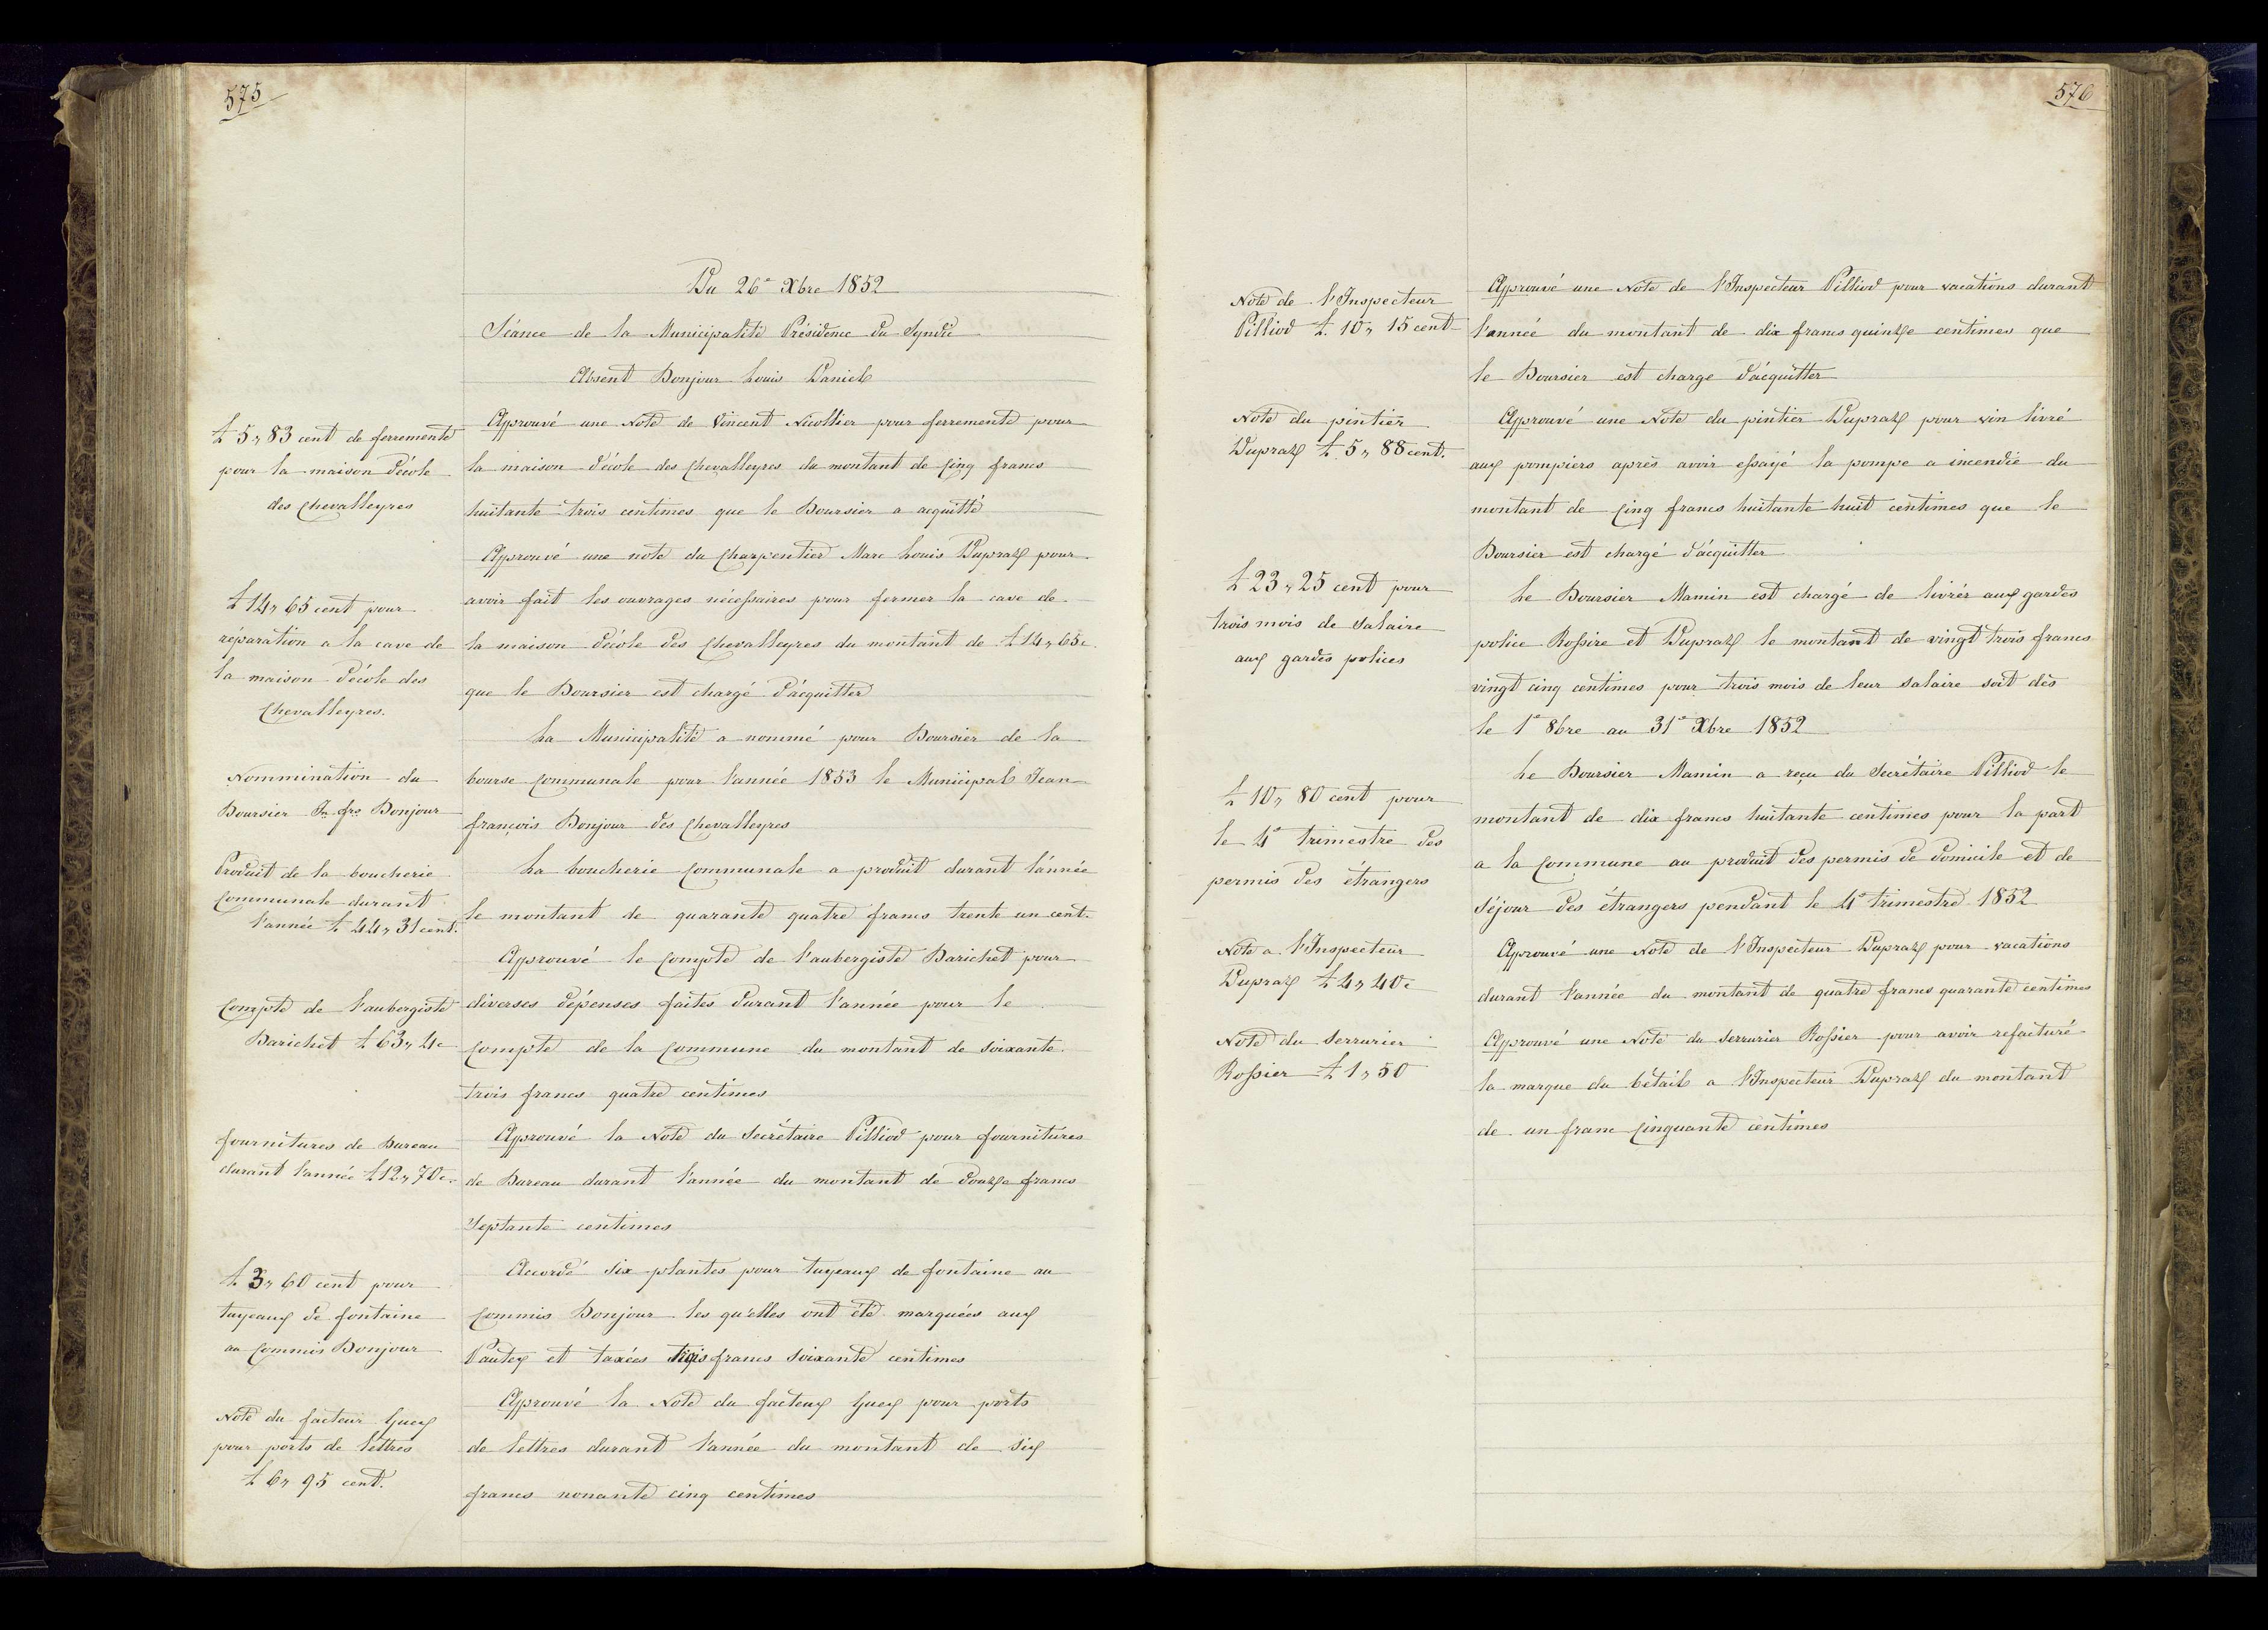 575
Du 26e Xbre 1852
Séance de la Municipalité Présidence du Syndic
Absent Bonjour Louis Daniel
£ 5 „ 83 cent de ferremente
pour la maison d'école
des Chevalleyres
Approuvé une Note de Vincent Nicollier pour ferremente pour
la maison d'école des Chevalleyres du montant de Cinq francs
huitante trois centimes que le Boursier a acquitté
£ 14 „ 65 cent pour
réparation a la cave de
la maison d'école des
Chevalleyres.
Approuvé une note du Charpentier Marc Louis Dupraz pour
avoir fait les ouvrages nécessaires pour fermer la cave de
la maison d'école des Chevalleyres du montant de £ 14 „ 65 c.
que le Boursier est chargé d'acquitter
Nommination du
Boursier Jn frs Bonjour
La Municipalité a nommé pour Boursier de la
bourse Communale pour l'année 1853 le Municipal Jean
françois Bonjour des Chevalleyres
Produit de la boucherie
Communale durant
l'année £ 44 „ 31 cent.
La boucherie Communale a produit durant l'année
le montant de quarante quatre francs trente un cent.
Compte de l'aubergiste
Barichet £ 63 „ 4 c
Approuvé le Compte de l'aubergiste Barichet pour
diverses dépenses faites durant l'année pour le
Compte de la Commune du montant de soixante
trois francs quatre centimes
fournitures de Bureau
durant l'année £ 12 „ 70 c.
Approuvé la Note du Secrétaire Pilliod pour fournitures
de Bureau durant l'année du montant de douze francs
Septante centimes
£ 3 „ 60 cent pour
tuyeaux de fontaine
au Commis Bonjour
Accordé six plantes pour tuyeaux de fontaine au
Commis Bonjour les qu'elles ont été marquées aux
Pautex et taxées trois francs soixante centimes
Note du facteur Guex
pour ports de lettres
£ 6 „ 95 cent.
Approuvé la Note du facteux Guex pour ports
de lettres durant l'année du montant de six
francs nonante cinq centimes
576
Note de l'Inspecteur
Pilliod £. 10 „ 15 cent
Approuvé une Note de l'Inspecteur Pilliod pour vacations durant
l'année du montant de dix francs quinze centimes que
le Boursier est charge d'acquitter
Note du pintier
Dupraz £ 5 „ 88 cent.
Approuvé une Note du pintier Dupraz pour vin livré
aux pompiers après avoir essayé la pompe a incendie du
montant de Cinq francs huitante huit centimes que le
Boursier est chargé d'acquitter
£ 23 „ 25 cent pour
trois mois de Salaire
aux gardes polices
Le Boursier Mamin est chargé de livrér aux gardes
police Rossire et Dupraz le montant de vingt trois francs
vingt cinq centimes pour trois mois de leur salaire soit dès
le 1e 8bre au 31e Xbre 1852
£ 10 „ 80 cent pour
le 4e trimestre des
permis des étrangers
Le Boursier Mamin a reçu du Secrétaire Pilliod le
montant de dix francs huitante centimes pour la part
a la Commune au produit des permis de domicile et de
Séjour des étrangers pendant le 4e trimestre 1852
Note a l'Inspecteur
Dupraz £ 4 „ 40 c
Approuvé une Note de l'Inspecteur Dupraz pour vacations
durant l'année du montant de quatre francs quarante centimes
Note du serrurier
Rossier £ 1 „ 50
Approuvé une Note du serrurier Rossier pour avoir refacturé
la marque du bétail a l'Inspecteur Dupraz du montant
de un franc Cinquante centimes